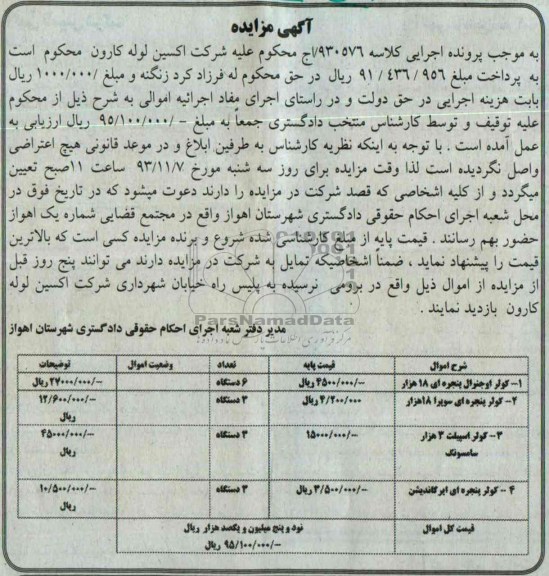 آگهی مزایده
به موجب پرونده اجرایی کلاسه ۹۳۰۵۷۶/اج محکوم علیه شرکت اکسین لوله کارون محکوم است
به پرداخت مبلغ ۹۵۶ / ۴۳۶ / ۹۱ ریال در حق محکوم له فرزاد کرد زنگنه و مبلغ ۱۰۰۰/۰۰۰/ ریال
بابت هزینه اجرایی در حق دولت و در راستای اجرای مفاد اجرائیه اموالی به شرح ذیل از محکوم
علیه توقیف و توسط کارشناس منتخب دادگستری جمعاً به مبلغ -/۹۵/۱۰۰/۰۰۰ ریال ارزیابی به
عمل آمده است . با توجه به اینکه نظریه کارشناس به طرفین ابلاغ و در موعد قانونی هیچ اعتراضی
واصل نگردیده است لذا وقت مزایده برای روز سه شنبه مورخ ۹۳/۱۱/۷ ساعت ۱۱صبح تعیین
میگردد و از کلیه اشخاصی که قصد شرکت در مزایده را دارند دعوت میشود که در تاریخ فوق در
محل شعبه اجرای احکام حقوقی دادگستری شهرستان اهواز واقع در مجتمع قضایی شماره یک اهواز
حضور بهم رسانند . قیمت پایه از مبلغ کارشناسی شده شروع و برنده مزایده کسی است که بالاترین
قیمت را پیشنهاد نماید ، ضمناً اشخاصیکه تمایل به شرکت در مزایده دارند می توانند پنج روز قبل
از مزایده از اموال ذیل واقع در برومی نرسیده به پلیس راه خیابان شهرداری شرکت اکسین لوله
کارون بازدید نمایند .
ParsNamadData
مدیر دفتر شعبه اجرای احکام حقوقی دادگستری شهرستان اهواز
شرح اموال قیمت پایه تعداد وضعیت اموال توضیحات
۱- کولر اوجنرال پنجره ای ۱۸ هزار -/۴۵۰۰/۰۰۰ ریال ۶ دستگاه -/۲۷۰۰۰/۰۰۰ ریال
۲- کولر پنجره ای سوپرا ۱۸هزار ۴/۲۰۰/۰۰۰ ریال ۳ دستگاه -/۱۲/۶۰۰/۰۰۰
ریال
۳- کولر اسپیلت ۳ هزار -/۱۵۰۰۰/۰۰۰ ۳ دستگاه -/۴۵۰۰۰/۰۰۰
سامسونگ ریال
۴- کولر پنجره ای ایرکاندیشن -/۳/۵۰۰/۰۰۰ ریال ۳ دستگاه -/۱۰/۵۰۰/۰۰۰
ریال
قیمت کل اموال نود و پنج میلیون و یکصد هزار ریال
-/۹۵/۱۰۰/۰۰۰ ریال